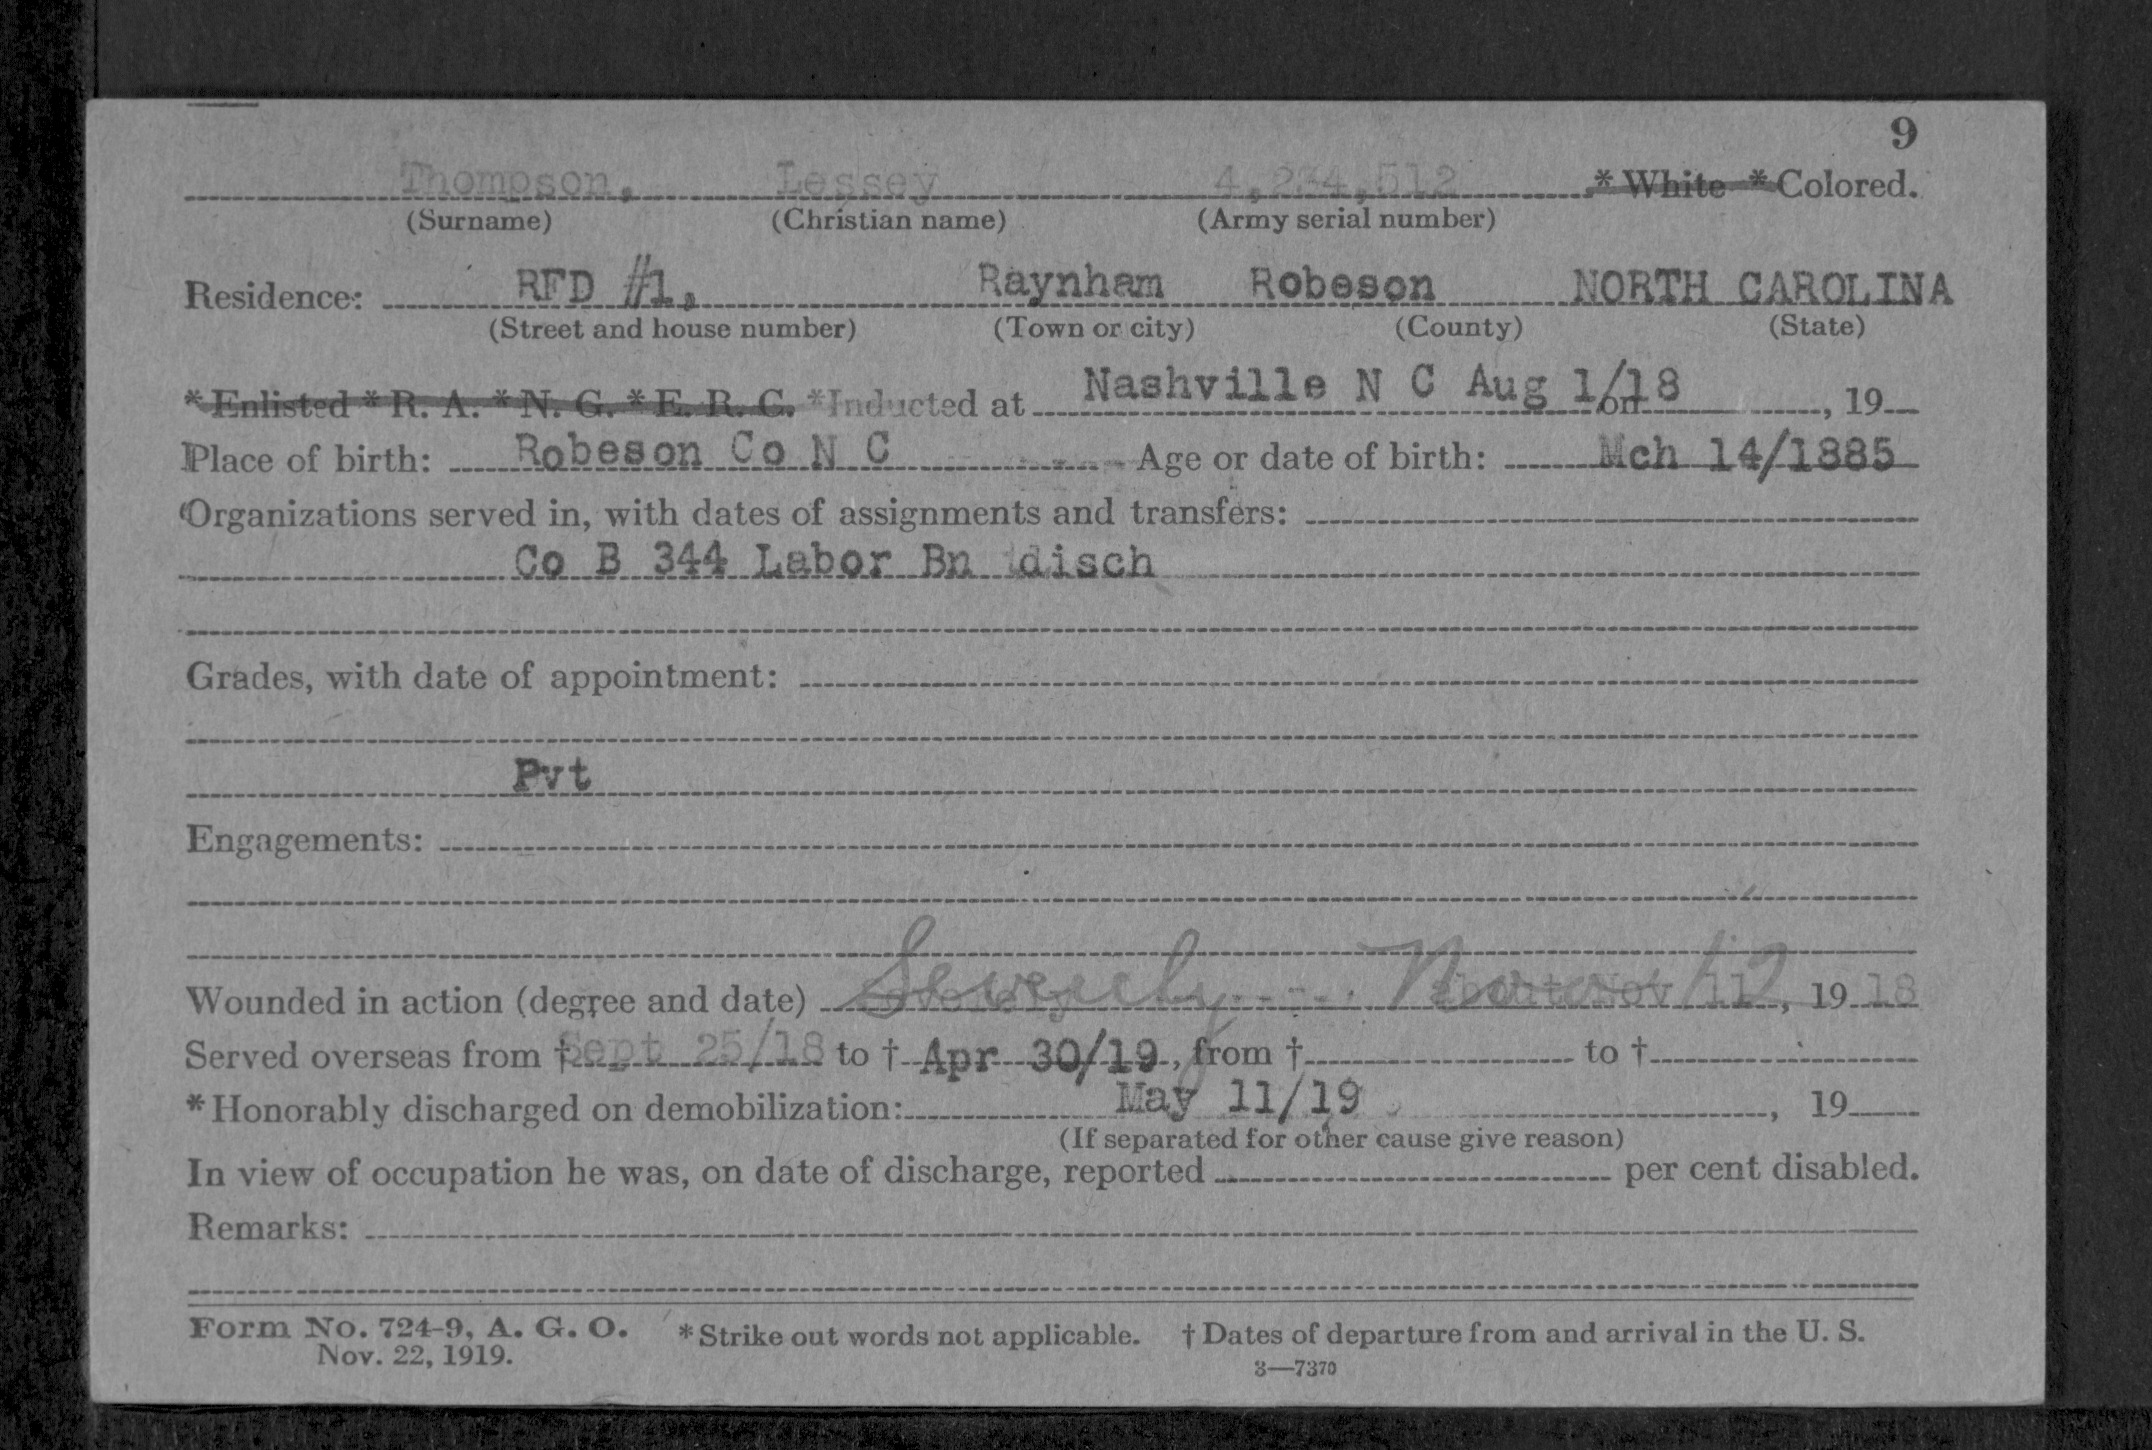 9
Thompson, Lessey 4,234,512 * White * Colored.
(Surname) (Christian name) (Army serial number)
Residence: RFD #1, Raynham Robeson NORTH CAROLINA
(Street and house number) (Town or city) (County) (State)
* Enlisted * R. A. * N. G. * E. R. C. * Inducted at Nashville N C Aug 1/18 on , 19
Place of birth: Robeson Co N C Age or date of birth: Mch 14/1885
Organizations served in, with dates of assignments and transfers:
Co B 344 Labor Bn disch
Grades, with date of appointment:
Pvt
Engagements:
Wounded in action (degree and date) Severely about Nov 11, 19 18
Served overseas from † Sept 25/18 to † Apr 30/19, from † to †
* Honorably discharged on demobilization: May 11/19 , 19
(If separated for other cause give reason)
In view of occupation he was, on date of discharge, reported per cent disabled.
Remarks:
Form No. 724-9, A. G. O. * Strike out words not applicable. † Dates of departure from and arrival in the U. S.
Nov. 22, 1919. 3—7370